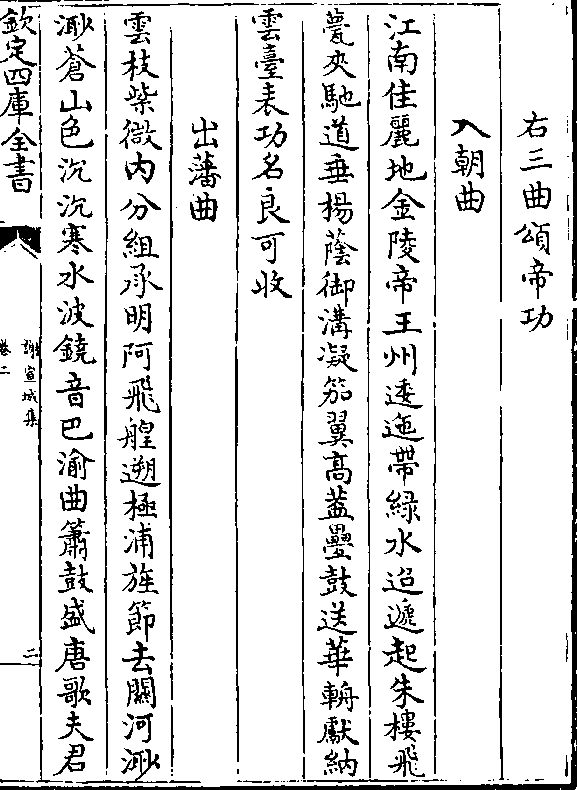 右三曲頌帝功
入朝曲
江南佳麗地金陵帝王州逶迤帶綠水迢遞起朱樓飛
甍夾馳道垂楊蔭御溝凝笳翼高蓋疊鼓送華輈獻納
雲臺表功名良可收
出藩曲
雲枝紫微內分組承明阿飛艎遡極浦旌節去關河渺
渺蒼山色沉沉寒水波鐃音巴渝曲簫鼓盛唐歌夫君
欽定四庫全書
謝宣城集
卷二
二